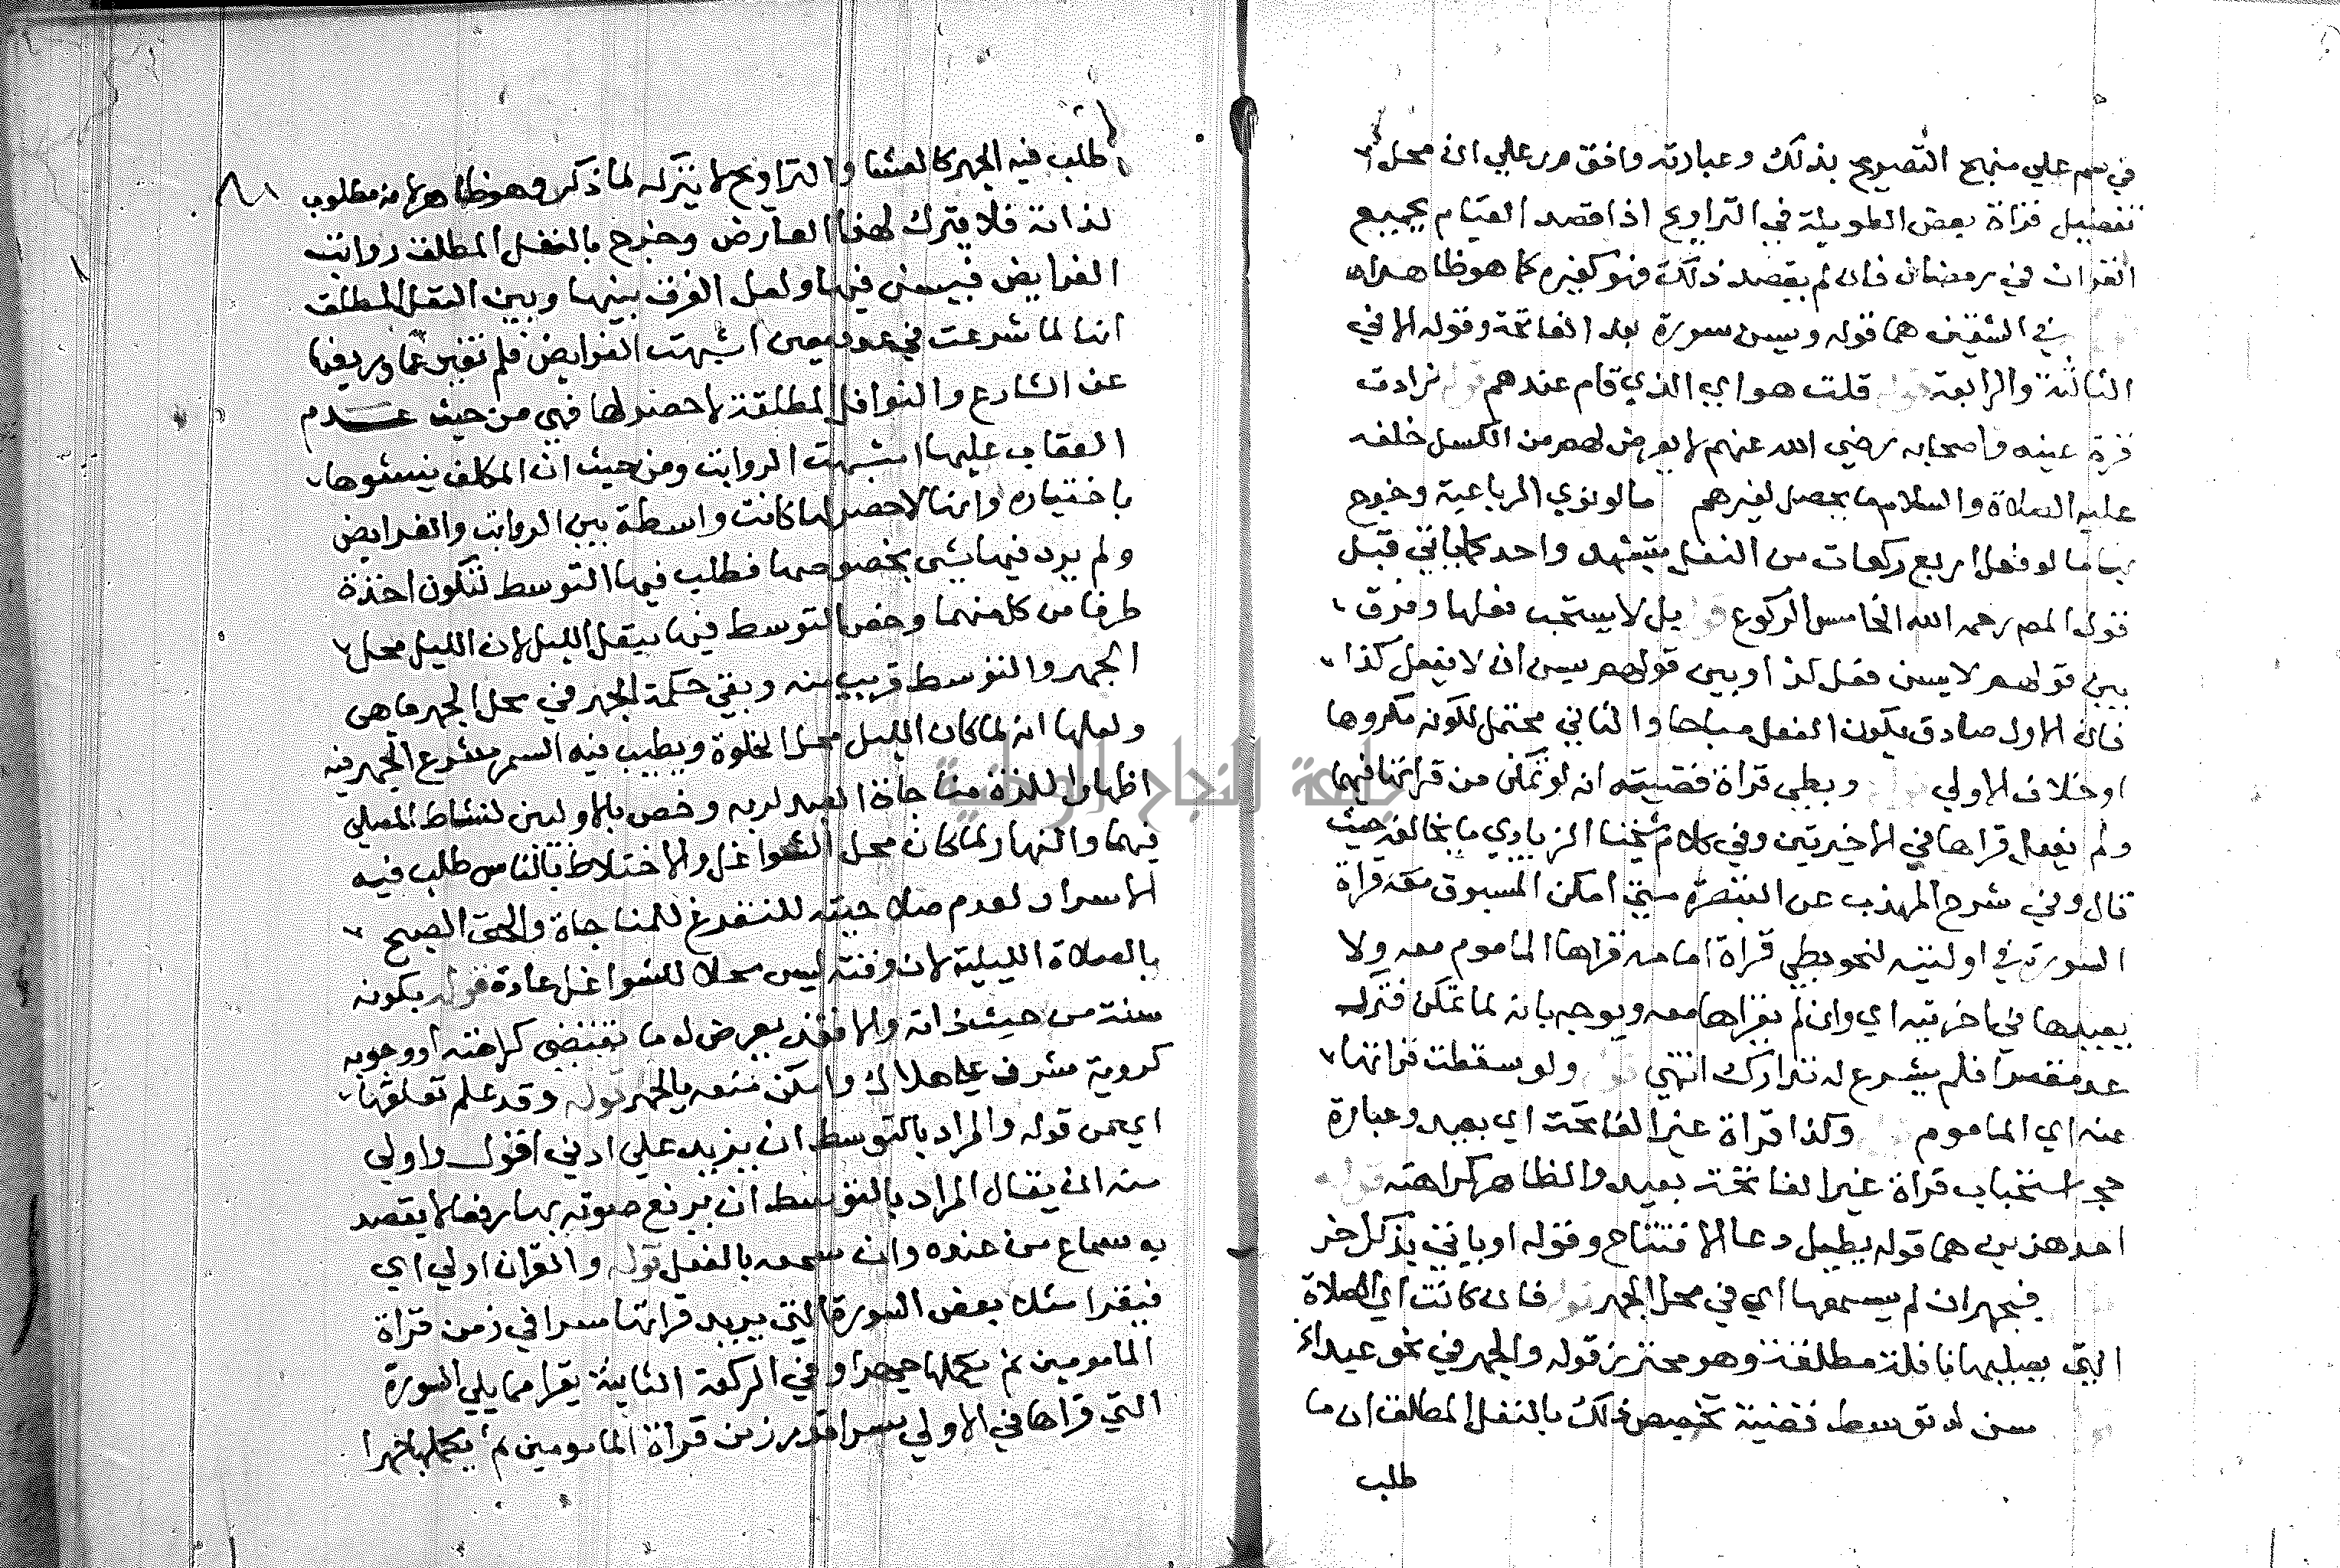 في سم علي منهج التصريح بذلك وعبارته وافق مر علي ان محل
تفضيل قراة بعض الطويلة في التراويح اذا قصد القيام بجميع
القران في رمضان فان لم يقصد ذلك فهو كغيره كما هو ظاهر اه
في الشقين هما قوله ويسن سورة بعد الفاتحة وقوله الا في
الثالثة والرابعة قوله قلت هو اي الذي قام عندهم قوله زادت
قرة عينه واصحابه رضي الله عنهم لا يعرض لهم من الكسل خلفه
عليه الصلاة والسلام ما يحصل لغيرهم مالو نوي الرباعية وخرج
به ما لو فعل اربع ركعات من النفل بتشهد واحد كما ياتي قبل
قول المص رحمه الله الخامس الركوع قوله بل لا يستحب فعلها وفرق
بين قولهم لا يسن فعل كذا وبين قولهم يسن ان لا يفعل كذا
فان الاول صادق بكون الفعل مباحا والثاني محتمل لكونه مكروها
او خلاف الاولي وبطي قراة قضيته انه لو تمكن من قراتها فيهما
ولم يفعل قراها في الاخيرتين وفي كلام شيخنا الزيادي ما يخالفه حيث
قال وفي شرح المهذب عن التبصرة متي امكن المسبوق قراة
السورة في اولتيه لنحو بطي قراة امامه قراها الماموم معه ولا
يعيدها في اخرتيه اي وان لم يقراها معه ويوجه بانه لما تمكن فترك
عد مقصرا فلم يشرع له تدارك انتهي ولو سقطت قراتها
عنه اي الماموم وكذا قراة غير الفاتحة اي بعيد وعبارة
حج استحباب قراة غير الفاتحة بعيد والظاهر كراهته قوله
احد هذين هما قوله يطيل دعا الافتتاح وقوله او ياتي بذكر اخر
فيجهر ان لم يسمعها اي في محل الجهر قوله فان كانت اي الصلاة
التي يصليها نافلة مطلقة وهو محترز قوله والجهر في نحو عيد اه
سن له توسط قضية تخصيص ذلك بالنفل المطلق ان ما
طلب
٨١
طلب فيه الجهر كالعشا والتراويح لا يتركه لما ذكر وهو ظاهر لانه مطلوب
لذاته فلا يترك لهذا العارض وخرج بالنفل المطلق رواتب
الفرايض فيسن فيها ولعل الفرق بينها وبين النفل المطلق
انها لما شرعت في عدد معين اشبهت الفرايض فلم تغير عما ورد فيها
عن الشارع والنوافل المطلقة لا حصر لها فهي من حيث عدم
العقاب عليها اشبهت الرواتب ومن حيث ان المكلف ينشوها
باختياره وانها لا حصر لها كانت واسطة بين الرواتب والفرايض
ولم يرد فيها شي بخصوصها فطلب فيها التوسط لتكون اخذة
طرفا من كل منهما وخص التوسط فيها بنفل الليل لان الليل محل
الجهر والتوسط قريب منه وبقي حكمة الجهر في محل الجهر ما هي
ولعلها انه لما كان الليل محل الخلوة ويطيب فيه السمر شرع الجهر فيه
اظهارا للذة مناجاة العبد لربه وخص بالاولين لنشاط المصلي
فيهما والنهار لما كان محل الشواغل والاختلاط بالناس طلب فيه
الاسرار لعدم صلاحيته للتفرغ للمناجاة والحق الصبح
بالصلاة الليلية لان وقته ليس محلا للشواغل عادة قوله بكونه
سنة من حيث ذاته والا فقد يعرض له ما يقتضي كراهته او وجوبه
كروية مشرف علي هلاك وامكن منعه بالجهر قوله وقد علم تعلقها
اي من قوله والمراد بالتوسط ان يزيد علي ادني اقول واولي
منه ان يقال المراد بالتوسط ان يرفع صوته بها رفعا لا يقصد
به سماع من عنده وان سمعه بالفعل قوله والقران اولي اي
فيقرا مثلا بعض السورة التي يريد قراتها سرا في زمن قراة
المامومين ثم يكملها جهرا وفي الركعة الثانية يقرا مما يلي السورة
التي قراها في الاولي سرا قدر زمن قراة المامومين ثم يكملها جهرا
جامعة النجاح الوطنية